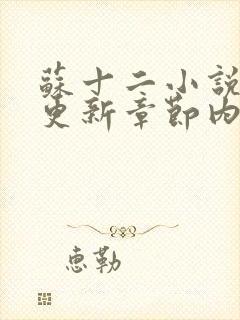 蘇十二小說
更新章節內
惠勒